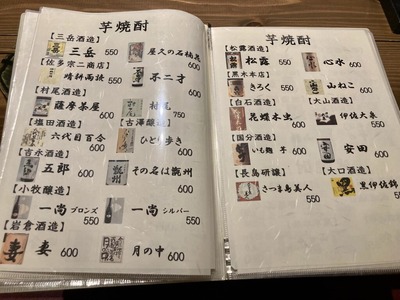 芋焼酎
【三岳酒造】
三岳 550
屋久の石楠花 600
【佐多宗二商店】
晴耕雨読 550
不二才 600
【村尾酒造】
薩摩茶屋 600
村尾 750
【塩田酒造】
【古澤醸造】
六代目百合 600
ひとり歩き 600
【吉永酒造】
五郎 600
その名は甑州 600
【小牧醸造】
一尚 ブロンズ 550
一尚 シルバー 550
【岩倉酒造】
妻 600
月の中 600
芋焼酎
【松露酒造】
松露 550
心水 600
【黒木本店】
きろく 550
山ねこ 600
【白石酒造】
【大山酒造】
花蝶木虫 600
伊佐大泉 550
【国分酒造】
いも麹 芋 600
安田 600
【長島研醸】
【大口酒造】
さつま島美人 550
黒伊佐錦 550